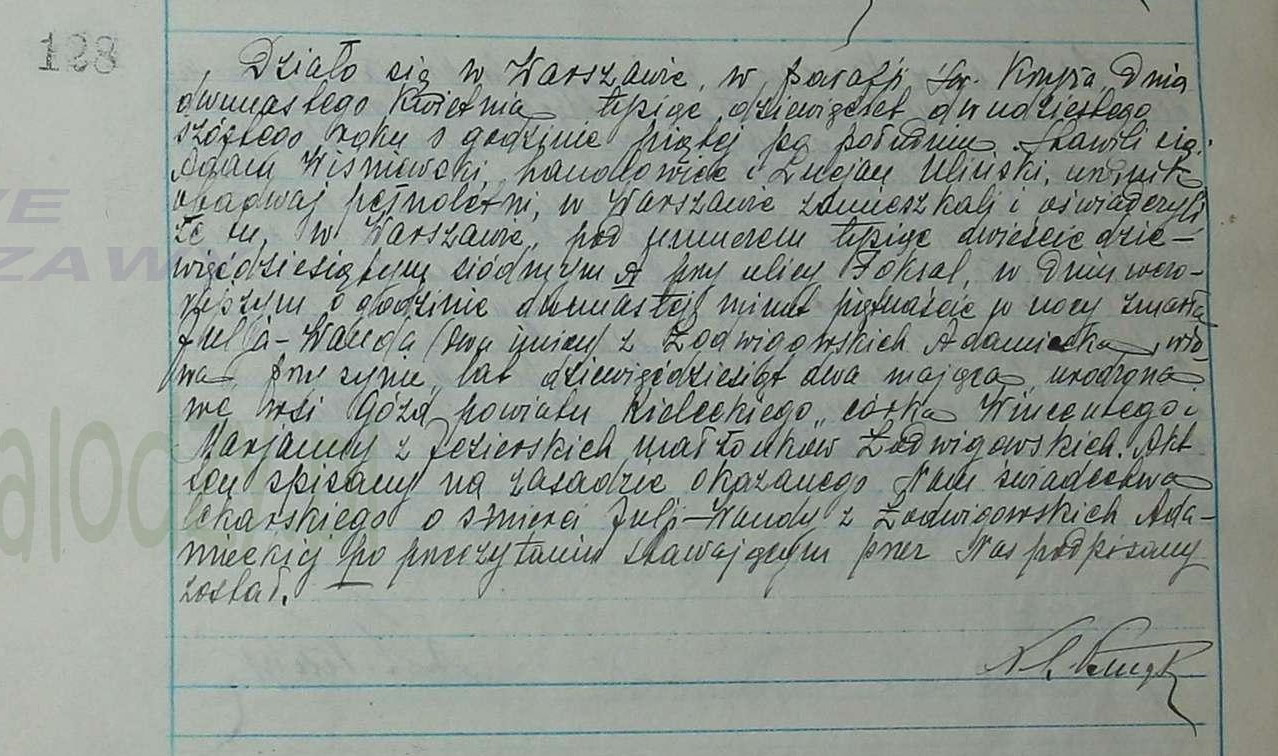 128
Działo się w Warszawie, w parafji Św. Krzyża, Dnia
dwunastego Kwietnia tysiąc dziewięćset dwudziestego
szóstego roku o godzinie piątej po południu. Stawili się:
Adam Wiśniewski, handlowiec i Lucjan Uliński, woźnik
obadwaj pełnoletni, w Warszawie zamieszkali i oświadczyli
że tu, w Warszawie, pod numerem tysiąc dwieście dzie-
więćdziesiątym siódmym A przy ulicy Foksal, w dniu wczo-
rajszym o godzinie dwunastej minut piętnaście w nocy zmarła
Julja-Wanda (dwu imion) z Łodwigowskich Adamiecka, wdo-
wa przy synu, lat dziewięćdziesiąt dwa mająca, urodzona
we wsi Gózd powiatu Kieleckiego, córka Wincentego i
Marjanny z Jezierskich małżonków Łodwigowskich. Akt
ten spisany na zasadzie okazanego Nam świadectwa
lekarskiego o śmierci Julji-Wandy z Łodwigowskich Ada-
mieckiej po przeczytaniu stawającym przez Nas podpisany
został.